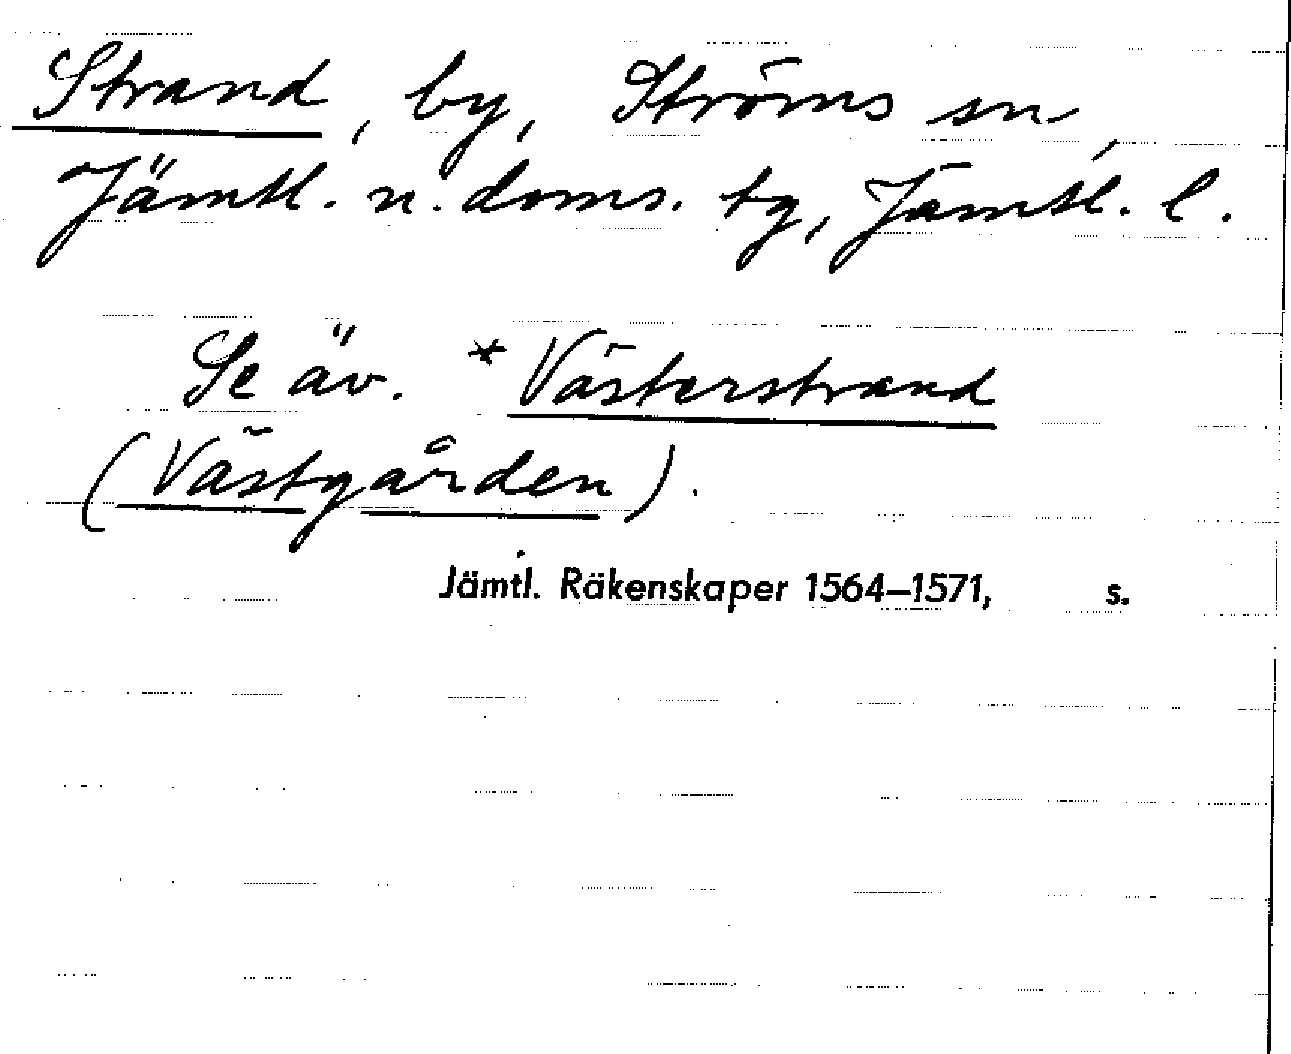 Strand, by, Ströms sn,
Jämtl. n. doms. tg, Jämtl. l.
Se äv. *Västerstrand
(Västgården).
Jämtl. Räkenskaper 1564–1571, s.